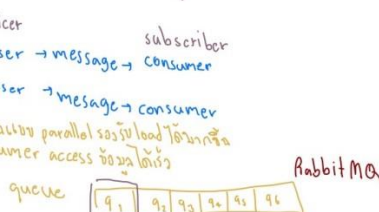 subscriber
ser → message → consumer
ser → mesage → consumer
แบบ parallel รองรับ load ได้มากขึ้น
umer access ข้อมูลได้เร็ว
RabbitMQ
queue q1 q2 q3 q4 q5 q6